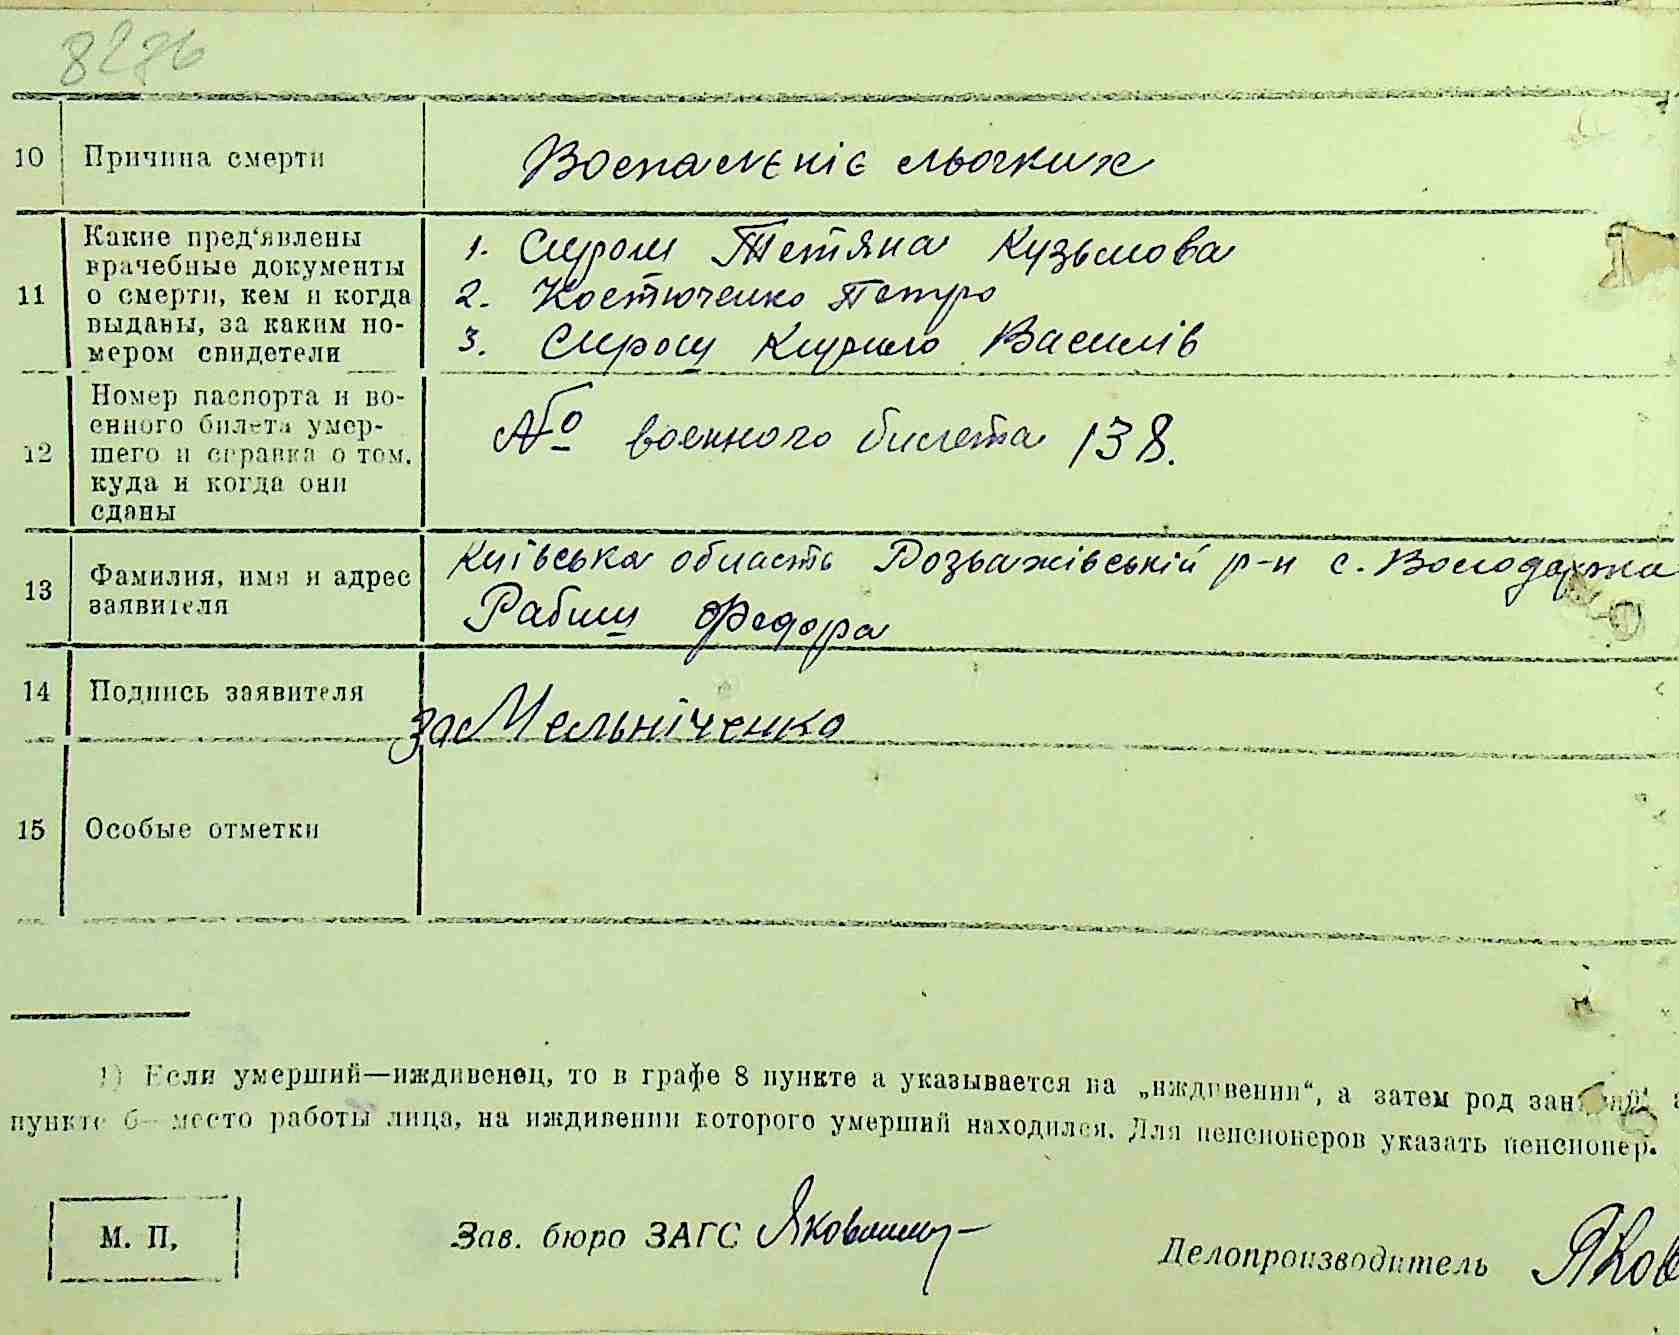 8286
10 Причина смерти Воспалєніє льогких
11 Какие пред‘явлены
врачебные документы
о смерти, кем и когда
выданы, за каким но-
мером свидетели
1. Тетяна Кузьмова
2. Костюченко Петро
3. Кирило Василів
12 Номер паспорта и во-
енного билета умер-
шего и справка о том,
куда и когда они
сданы
№ военного билета 138.
13 Фамилия, имя и адрес
заявителя
Київська область Розважівській р-н с. Володарка
Федора
14 Подпись заявителя за Мельніченко
15 Особые отметки
1) Если умерший—иждивенец, то в графе 8 пункте а указывается на „иждивении“, а затем род
пункте б— место работы лица, на иждивении которого умерший находился. Для пенсионеров указать пенсионер.
М. П.
Зав. бюро ЗАГС
Делопроизводитель Яков